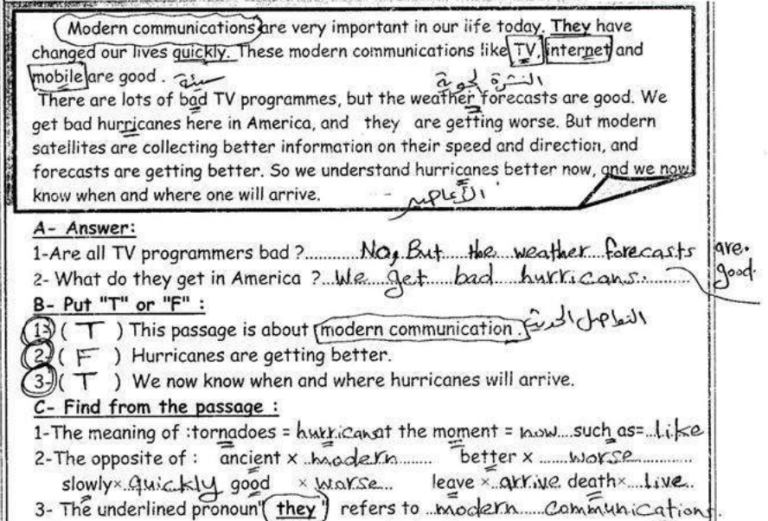 Modern communications are very important in our life today. They have
changed our lives quickly. These modern communications like TV, internet and
mobile are good. سيئة النشرة الجوية
There are lots of bad TV programmes, but the weather forecasts are good. We
get bad hurricanes here in America, and they are getting worse. But modern
satellites are collecting better information on their speed and direction, and
forecasts are getting better. So we understand hurricanes better now, and we now
know when and where one will arrive. الأعاصير
A- Answer:
1-Are all TV programmers bad ?..........No, But the weather forecasts are good.
2- What do they get in America ?...We get bad hurricans.
B- Put "T" or "F" :
1- ( T ) This passage is about modern communication. التواصل الحديثة
2- ( F ) Hurricanes are getting better.
3- ( T ) We now know when and where hurricanes will arrive.
C- Find from the passage :
1-The meaning of :tornadoes = hurricans at the moment = now....such as=..like
2-The opposite of : ancient x ..modern....... better x .......worse......
slowly×..quickly good × worse.. leave ×..arrive death×....live...
3- The underlined pronoun" they" refers to ..modern.....communications.